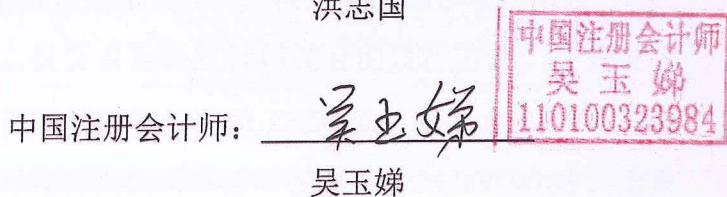 洪志国
中国注册会计师
吴玉娣
110100323984
中国注册会计师：吴玉娣
吴玉娣